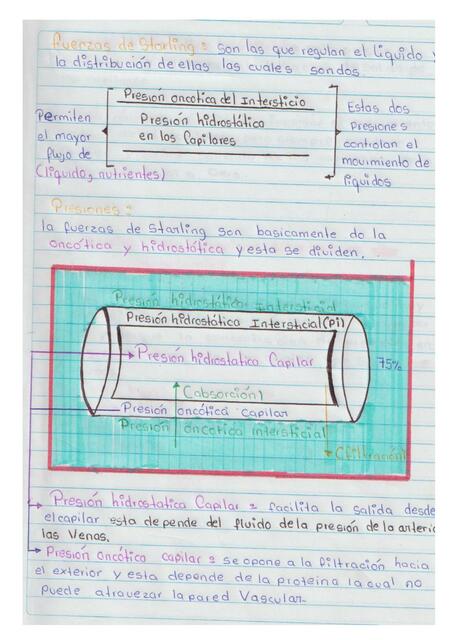 fuerzas de Starling: son las que regulan el liquido y
la distribución de ellas las cuales son dos.
Presión oncotica del Intersticio
Presión hidrostática
en los Capilares
Permiten
el mayor
flujo de
(liquido, nutrientes)
Estas dos
Presiones
controlan el
movimiento de
liquidos
Presiones:
la fuerzas de Starling son basicamente do la
oncótica y hidrostática y esta se dividen.
Presión hidrostática intersticial
Presión hidrostática Intersticial (Pi)
Presión hidrostatica Capilar
75%
Cabsorción)
Presión oncótica capilar
Presión oncotica intersticial
Cfiltración)
Presión hidrostatica Capilar = facilita la salida desde
el capilar esta depende del fluido de la presión de la arteria
las Venas.
Presión oncótica capilar = se opone a la filtración hacia
el exterior y esta depende de la proteina la cual no
puede atravezar la pared Vascular.